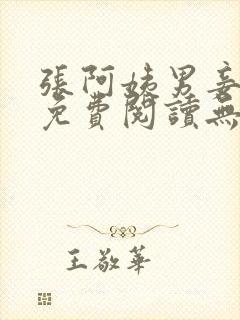 張阿姨男妾
免費閱讀無
王敬華